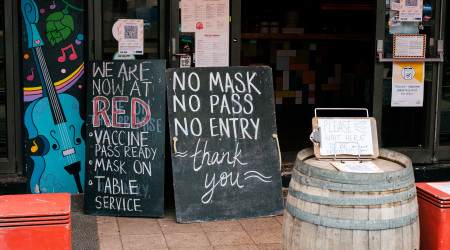 WE ARE
NOW AT
RED
• VACCINE
PASS READY
• MASK ON
• TABLE
SERVICE
NO MASK
NO PASS
NO ENTRY
thank
you
PLEASE
WAIT HERE